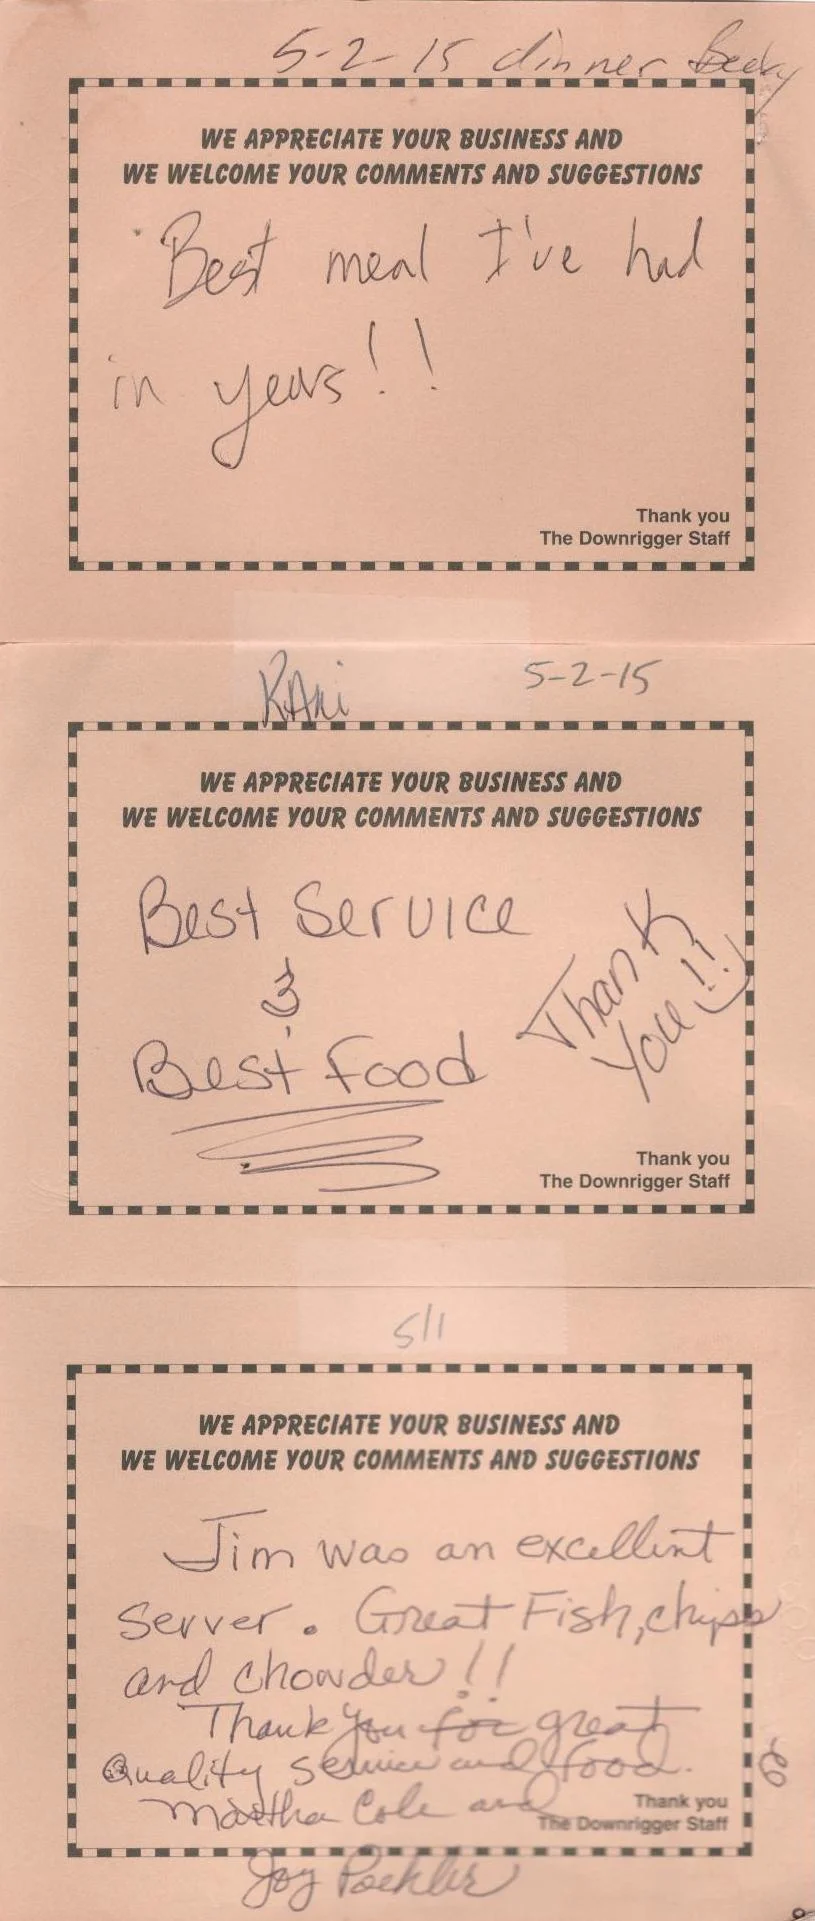 5-2-15 dinner Becky
WE APPRECIATE YOUR BUSINESS AND
WE WELCOME YOUR COMMENTS AND SUGGESTIONS
Best meal I've had
in years!!
Thank you
The Downrigger Staff
KAri 5-2-15
WE APPRECIATE YOUR BUSINESS AND
WE WELCOME YOUR COMMENTS AND SUGGESTIONS
Best Service
&
Best Food
Thank
You!!
Thank you
The Downrigger Staff
5/1
WE APPRECIATE YOUR BUSINESS AND
WE WELCOME YOUR COMMENTS AND SUGGESTIONS
Jim was an excellint
server. Great Fish, chips
and chowder!!
Thank you for great
Quality service and food.
Martha Cole and
Thank you
The Downrigger Staff
Joy